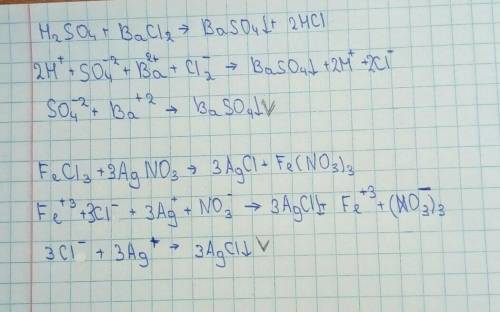 H₂SO₄ + BaCl₂ → BaSO₄↓ + 2HCl
2H⁺ + SO₄⁻² + Ba²⁺ + Cl₂⁻ → BaSO₄↓ + 2H⁺ + 2Cl⁻
SO₄⁻² + Ba⁺² → BaSO₄↓ V
FeCl₃ + 3AgNO₃ → 3AgCl + Fe(NO₃)₃
Fe⁺³ + 3Cl⁻ + 3Ag⁺ + NO₃⁻ → 3AgCl↓ + Fe⁺³ + (NO₃⁻)₃
3Cl⁻ + 3Ag⁺ → 3AgCl↓ V